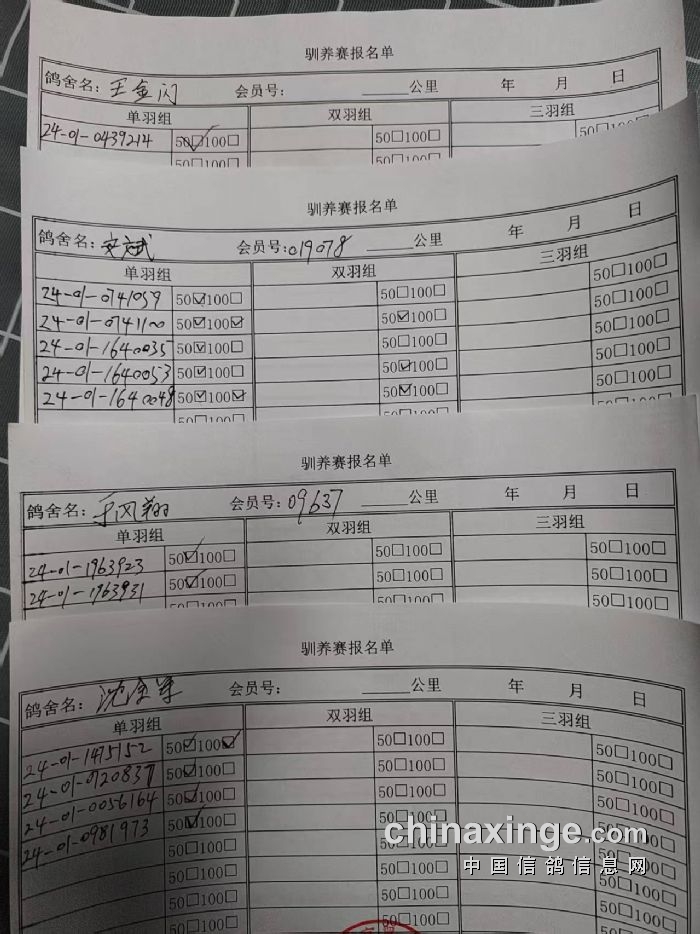 驯养赛报名单
鸽舍名：王金闪 会员号： ______公里 年 月 日
单羽组 双羽组 三羽组
24-01-0439214 50☑100☐ 50☐100☐ 50☐100☐
50☐100☐ 50☐100☐ 50☐100☐
驯养赛报名单
鸽舍名：安文武 会员号：019078 ______公里 年 月 日
单羽组 双羽组 三羽组
24-01-0741059 50☑100☐ 50☐100☐ 50☐100☐
24-01-0741100 50☑100☑ 50☑100☐ 50☐100☐
24-01-1640035 50☑100☐ 50☐100☐ 50☐100☐
24-01-1640053 50☑100☐ 50☑100☐ 50☐100☐
24-01-1640048 50☑100☑ 50☑100☐ 50☐100☐
50☐100☐ 50☐100☐ 50☐100☐
驯养赛报名单
鸽舍名：风翔 会员号：09637 年 月 日
单羽组 双羽组 三羽组
24-01-1963923 50☑100☐ 50☐100☐ 50☐100☐
24-01-1963931 50☑100☐ 50☐100☐ 50☐100☐
50☐100☐ 50☐100☐ 50☐100☐
驯养赛报名单
鸽舍名：沈金军 会员号： ______公里 年 月 日
单羽组 双羽组 三羽组
24-01-1475152 50☑100☑ 50☐100☐ 50☐100☐
24-01-0720837 50☑100☐ 50☐100☐ 50☐100☐
24-01-0056164 50☑100☐ 50☐100☐ 50☐100☐
24-01-0981973 50☑100☐ 50☐100☐ 50☐100☐
50☐100☐ 50☐100☐ 50☐100☐
50☐100☐ 50☐100☐ 50☐100☐
50☐100☐ 50☐100☐ 50☐100☐
50☐100☐ 50☐100☐ 50☐100☐
chinaxinge.com
中国信鸽信息网